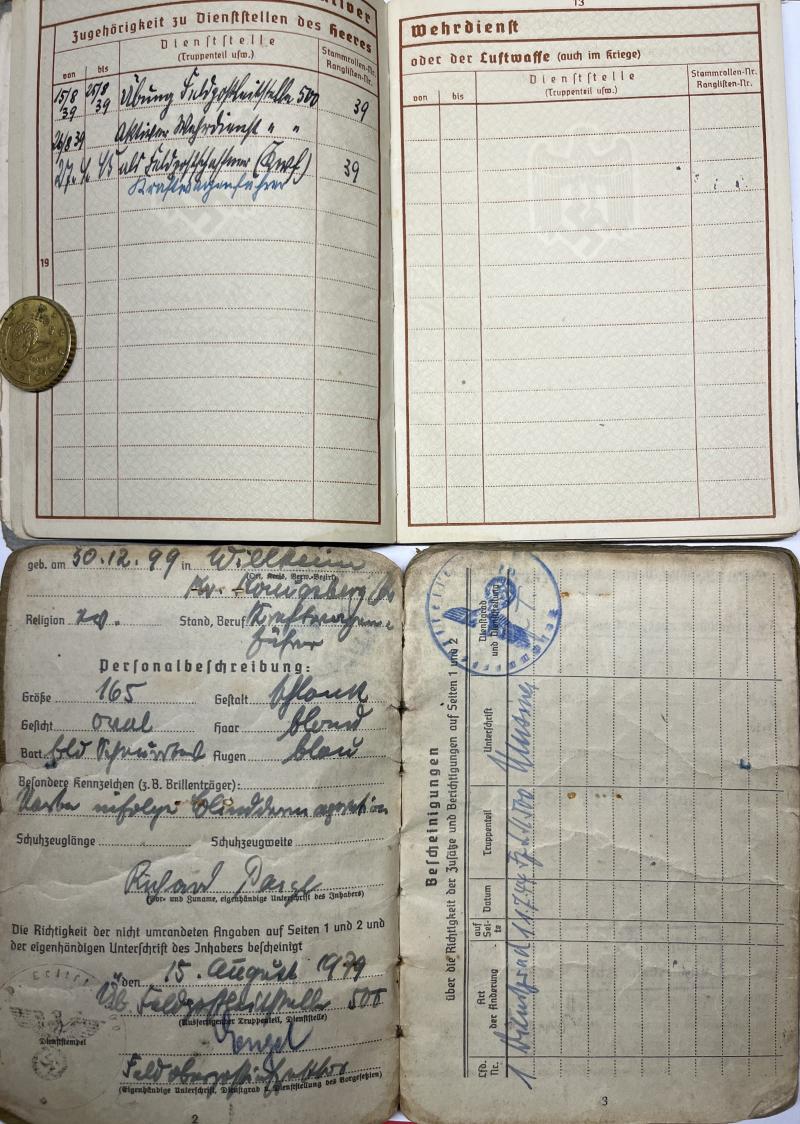 aktiver
Zugehörigkeit zu Dienststellen des Heeres
von
bis
Dienststelle
(Truppenteil usw.)
Stammrollen-Nr.
Ranglisten-Nr.
15/8 39
25/8 39
Übung Feldpostleitstelle 500
39
26/8 39
Aktiver Wehrdienst " "
27. 4. 45 als Feldpostschaffner (Kwf)
39
Kraftwagenführer
19
13
Wehrdienst
oder der Luftwaffe (auch im Kriege)
von
bis
Dienststelle
(Truppenteil usw.)
Stammrollen-Nr.
Ranglisten-Nr.
geb. am 30.12.99 in
(Ort, Kreis, Verw.-Bezirk)
Kr. Königsberg
Religion ev. Stand, Beruf Kraftwagen-
führer
Personalbeschreibung:
Größe 165 Gestalt schlank
Gesicht oval Haar blond
Bart Augen blau
Besondere Kennzeichen (z.B. Brillenträger):
Narbe infolge Blinddarmoperation
Schuhzeuglänge Schuhzeugweite
Richard
(Vor- und Zuname, eigenhändige Unterschrift des Inhabers)
Die Richtigkeit der nicht umrandeten Angaben auf Seiten 1 und 2 und
der eigenhändigen Unterschrift des Inhabers bescheinigt
den 15. August 1939
Üb. Feldpostleitstelle 500
(Ausfertigender Truppenteil, Dienststelle)
Dienststempel
(Eigenhändige Unterschrift, Dienstgrad u. Dienststellung des Vorgesetzten)
2
Bescheinigungen
über die Richtigkeit der Zusätze und Berichtigungen auf Seiten 1 und 2
Lfd. Nr.
Art der Änderung
auf Seite
Datum
Truppenteil
Unterschrift
Dienstgrad und Dienststellung
1 Dienstgrad 1 1.7.44 500
3